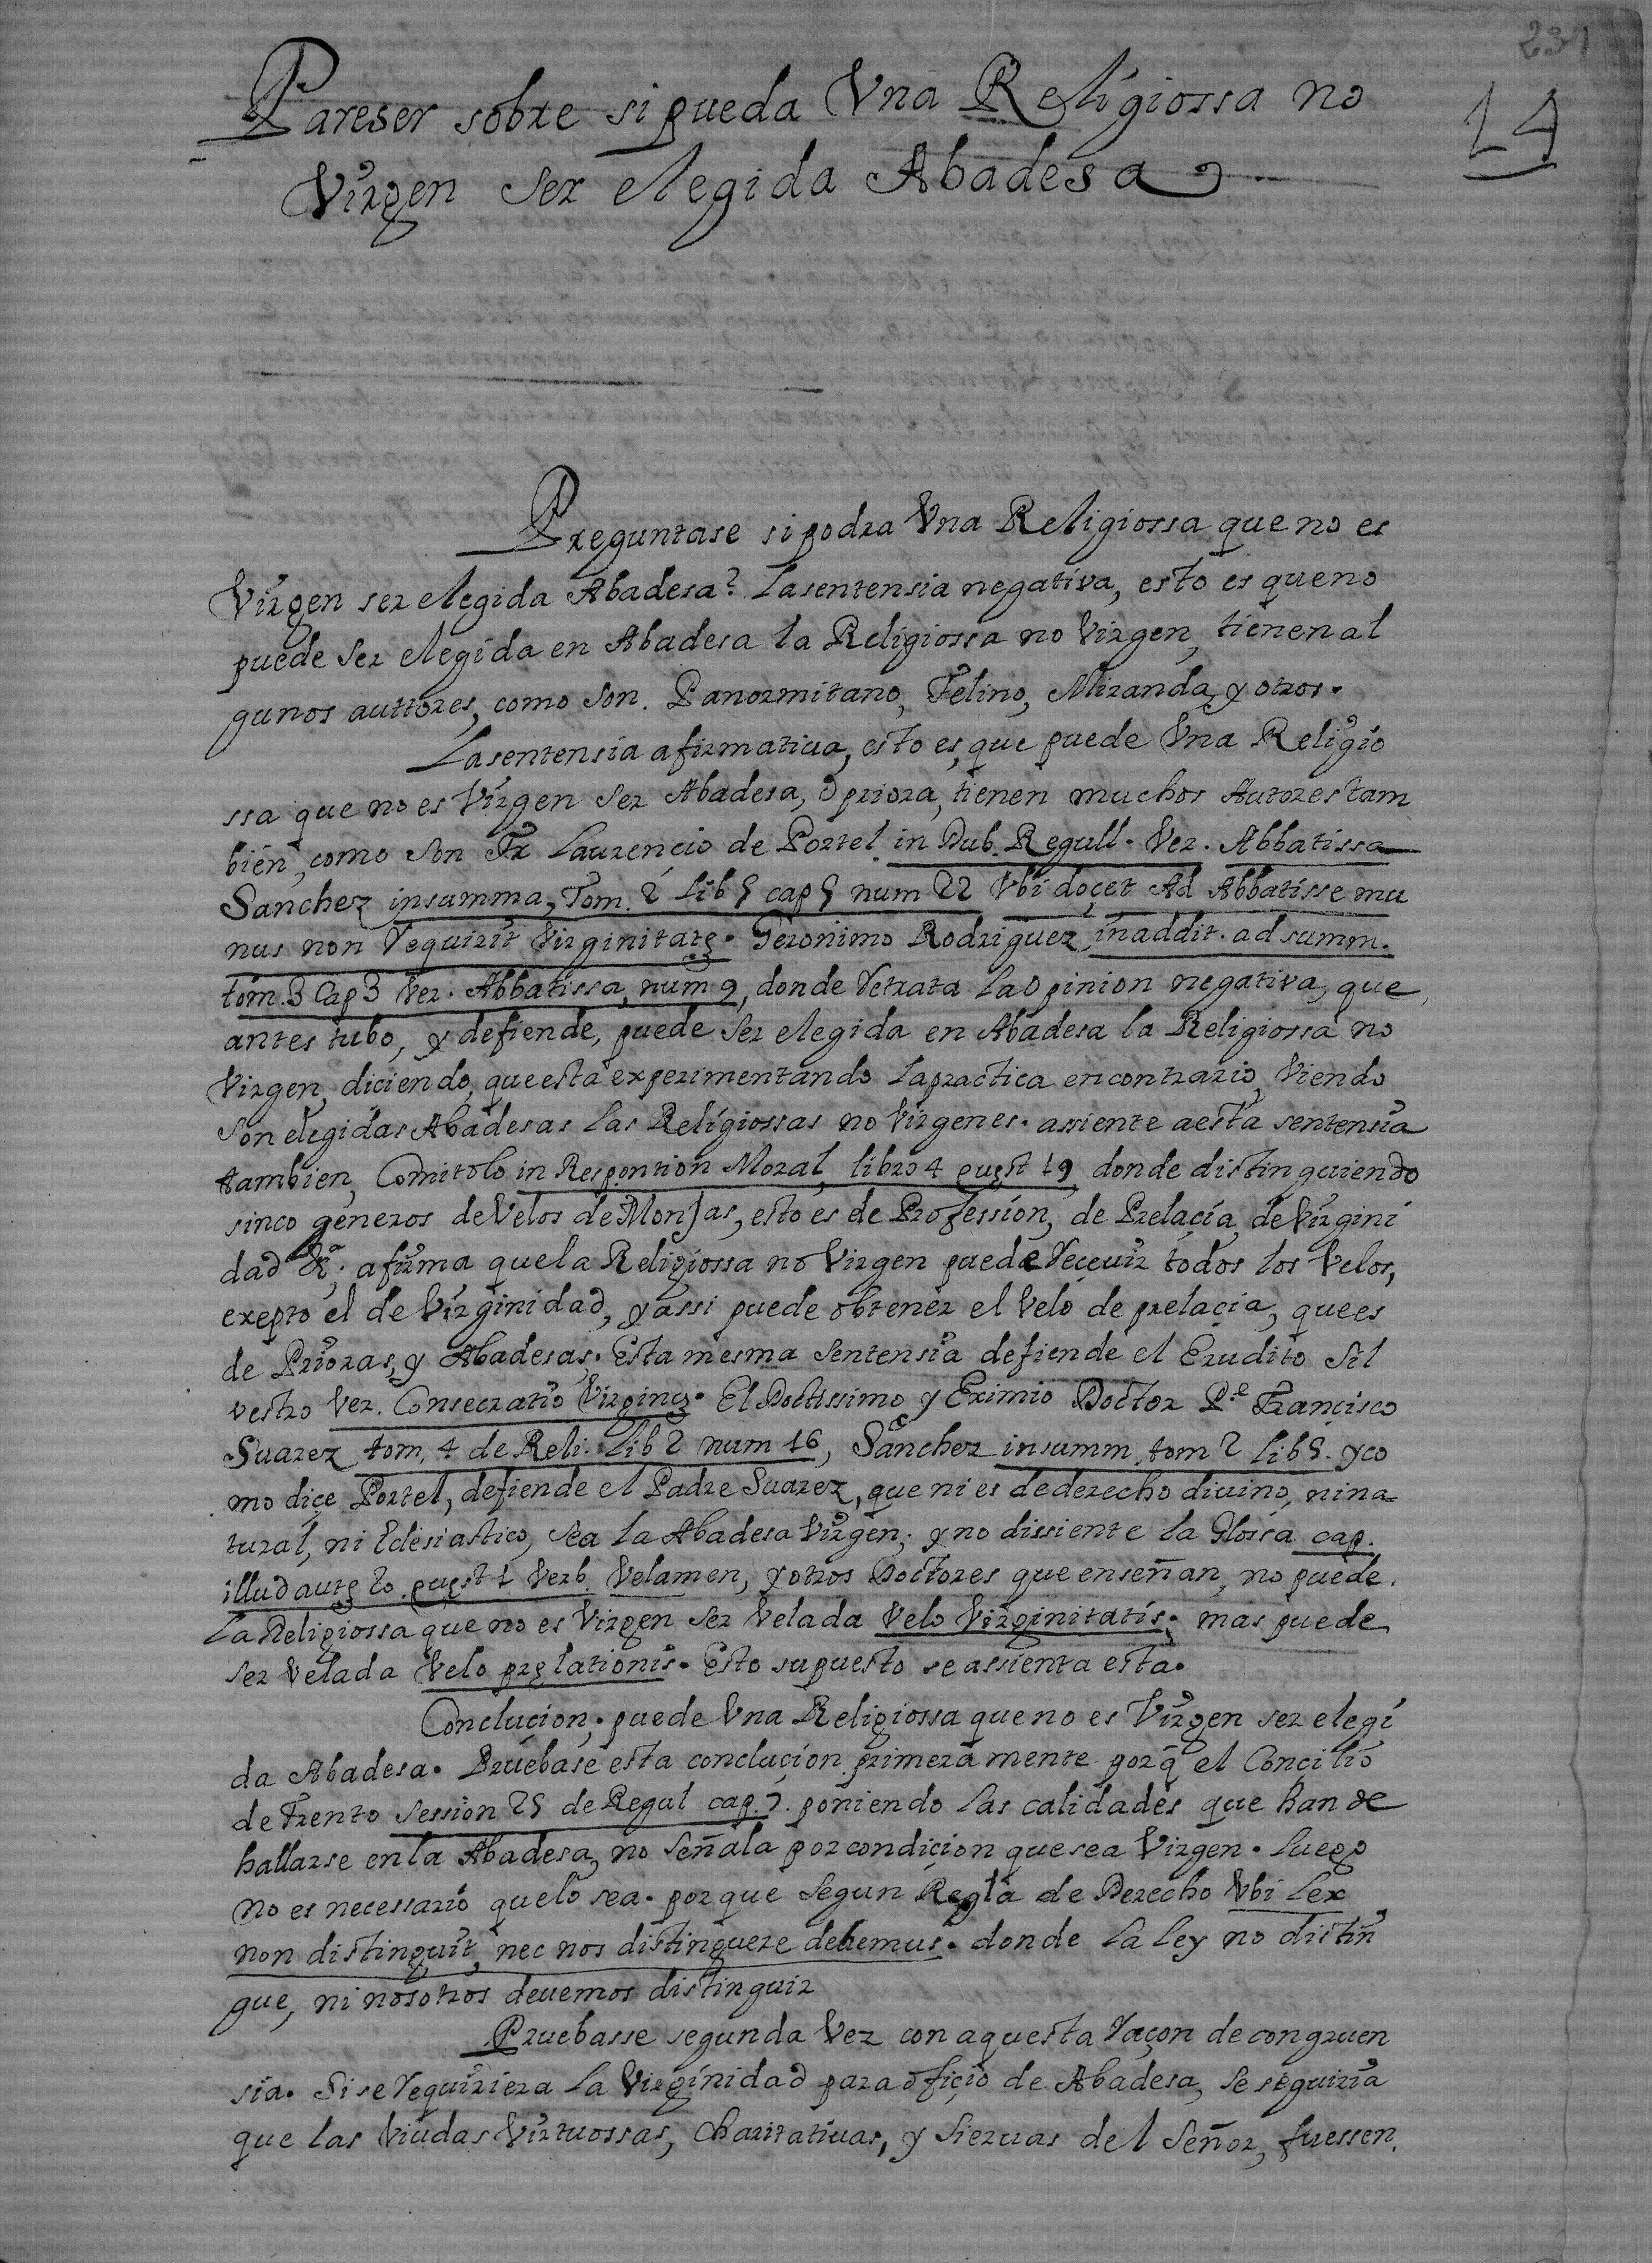 231
14
Pareser sobre si pueda Vna Religiossa no
Virgen ser elegida Abadesa
Preguntase si podra Vna Religiossa que no es
Virgen ser elegida Abadesa? La sentensia negativa, esto es que no
puede ser elegida en Abadesa la Religiossa no Virgen, tienen al
gunos auttores, como son. Panormitano, Felino, Miranda, y otros.
La sentensia afirmatiua, esto es, que puede Vna Religio
ssa que no es Virgen ser Abadesa, o priora, tienen muchos Autores tam
bien, como son Fr Laurencio de Portel in Dub. Regull. Ver. Abbatissa
Sanchez in summa, Tom. 2 Lib 5 cap 5 num 22 Vbi doçet Ad Abbatisse mu
nus non requirit Virginitatę. Geronimo Rodriguez in addit. ad summ.
tom. 3 Cap 3 Ver. Abbatissa, num 9, donde retrata la Opinion negativa, que
antes tubo, y defiende, puede ser elegida en Abadesa la Religiossa no
Virgen, diciendo, que esta experimentando la practica en contrario, Viendo
son elegidas Abadesas las Religiossas no Virgenes. assiente a esta sentensia
tambien, Comitolo in Respontion Moral, libro 4 quęst 19, donde distinguiendo
sinco generos de Velos de Monjas, esto es de Profession, de Prelaçia, de Virgini
dad &a; afirma que la Religiossa no Virgen puede reçeuir todos los Velos,
exepto el de Virginidad, y assi puede obtener el Velo de prelaçia, que es
de Prioras, y Abadesas. Esta mesma sentensia defiende el Erudito Sil
vestro Ver. Consecratio Virginę. El Doctissimo y Eximio Doctor P.e Françisco
Suarez tom. 4 de Reli. Lib 2 num 16, Sanchez in summ, tom 2 lib 5. y co
mo diçe Portel, defiende el Padre Suarez, que ni es de derecho diuino, ni na=
tural, ni Eclesiastico, sea la Abadesa Virgen; y no dissiente la Glosa cap.
illud autę 20. quęst 1 Verb. Velamen, y otros Doctores que enseñan, no puede
La Religiossa que no es Virgen ser Velada Velo Virginitatis; mas puede
ser Velada Velo pręlationis. Esto supuesto se assienta esta.
Conclucion; puede Vna Religiossa que no es Virgen ser elegi
da Abadesa. Pruebase esta conclucion primera mente porq̃ el Concilio
de Trento session 25 de Regul cap. 7. poniendo las calidades que han de
hallarse en la Abadesa, no señala por condicion que sea Virgen. luego
no es necessario que lo sea. por que segun Regla de Derecho Vbi Lex
non distinguit, nec nos distinguere debemus. donde la Ley no distin
gue, ni nosotros deuemos distinguir
Pruebasse segunda Vez con aquesta raçon de congruen
sia. Si se requiriera la Virginidad para ofiçio de Abadesa, se seguiria
que las Viudas Virtuossas, Charitatiuas, y sieruas del Señor, fuessen